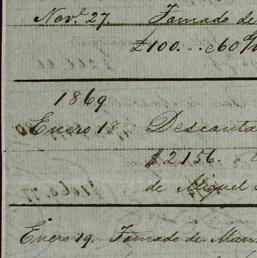 Novr. 27. Tomado de
£100...c60
1869
Enero 18. Descanta
$2156.
de Miguel
Enero 19. Tomado de Man